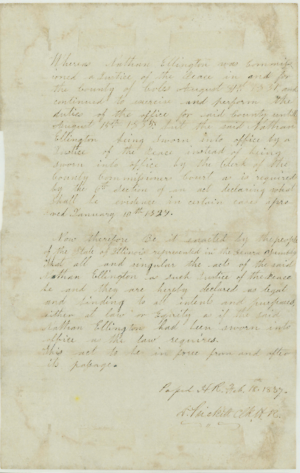 Whereas Nathan Ellington was commis-
sioned a Justice of the Peace in and for
the County of Cole August 1831, and
continued to exercise and perform the
duties of the office for said County until
August 18th and the said Nathan
Ellington being sworn into office by a
Justice of the Peace instead of being
sworn into office by the Clerk of the
County Commissioners Court as is required
by the Section of an act declaring what
shall be evidence in certain cases appro-
ved January 10th 1827.
Now therefore Be it enacted by the people
of the State of Illinois represented in the General Assembly
That all and singular the acts of the said
Nathan Ellington as such Justice of the Peace
be and they are hereby declared as legal
and binding to all intents and purposes,
either at law or Equity as if the said
Nathan Ellington had been sworn into
office as the law requires.
This act to be in force from and after
its passage.
Passed H.R. Feb. 1837.